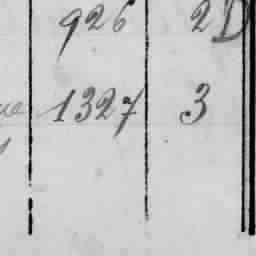 926 2D
1327 3